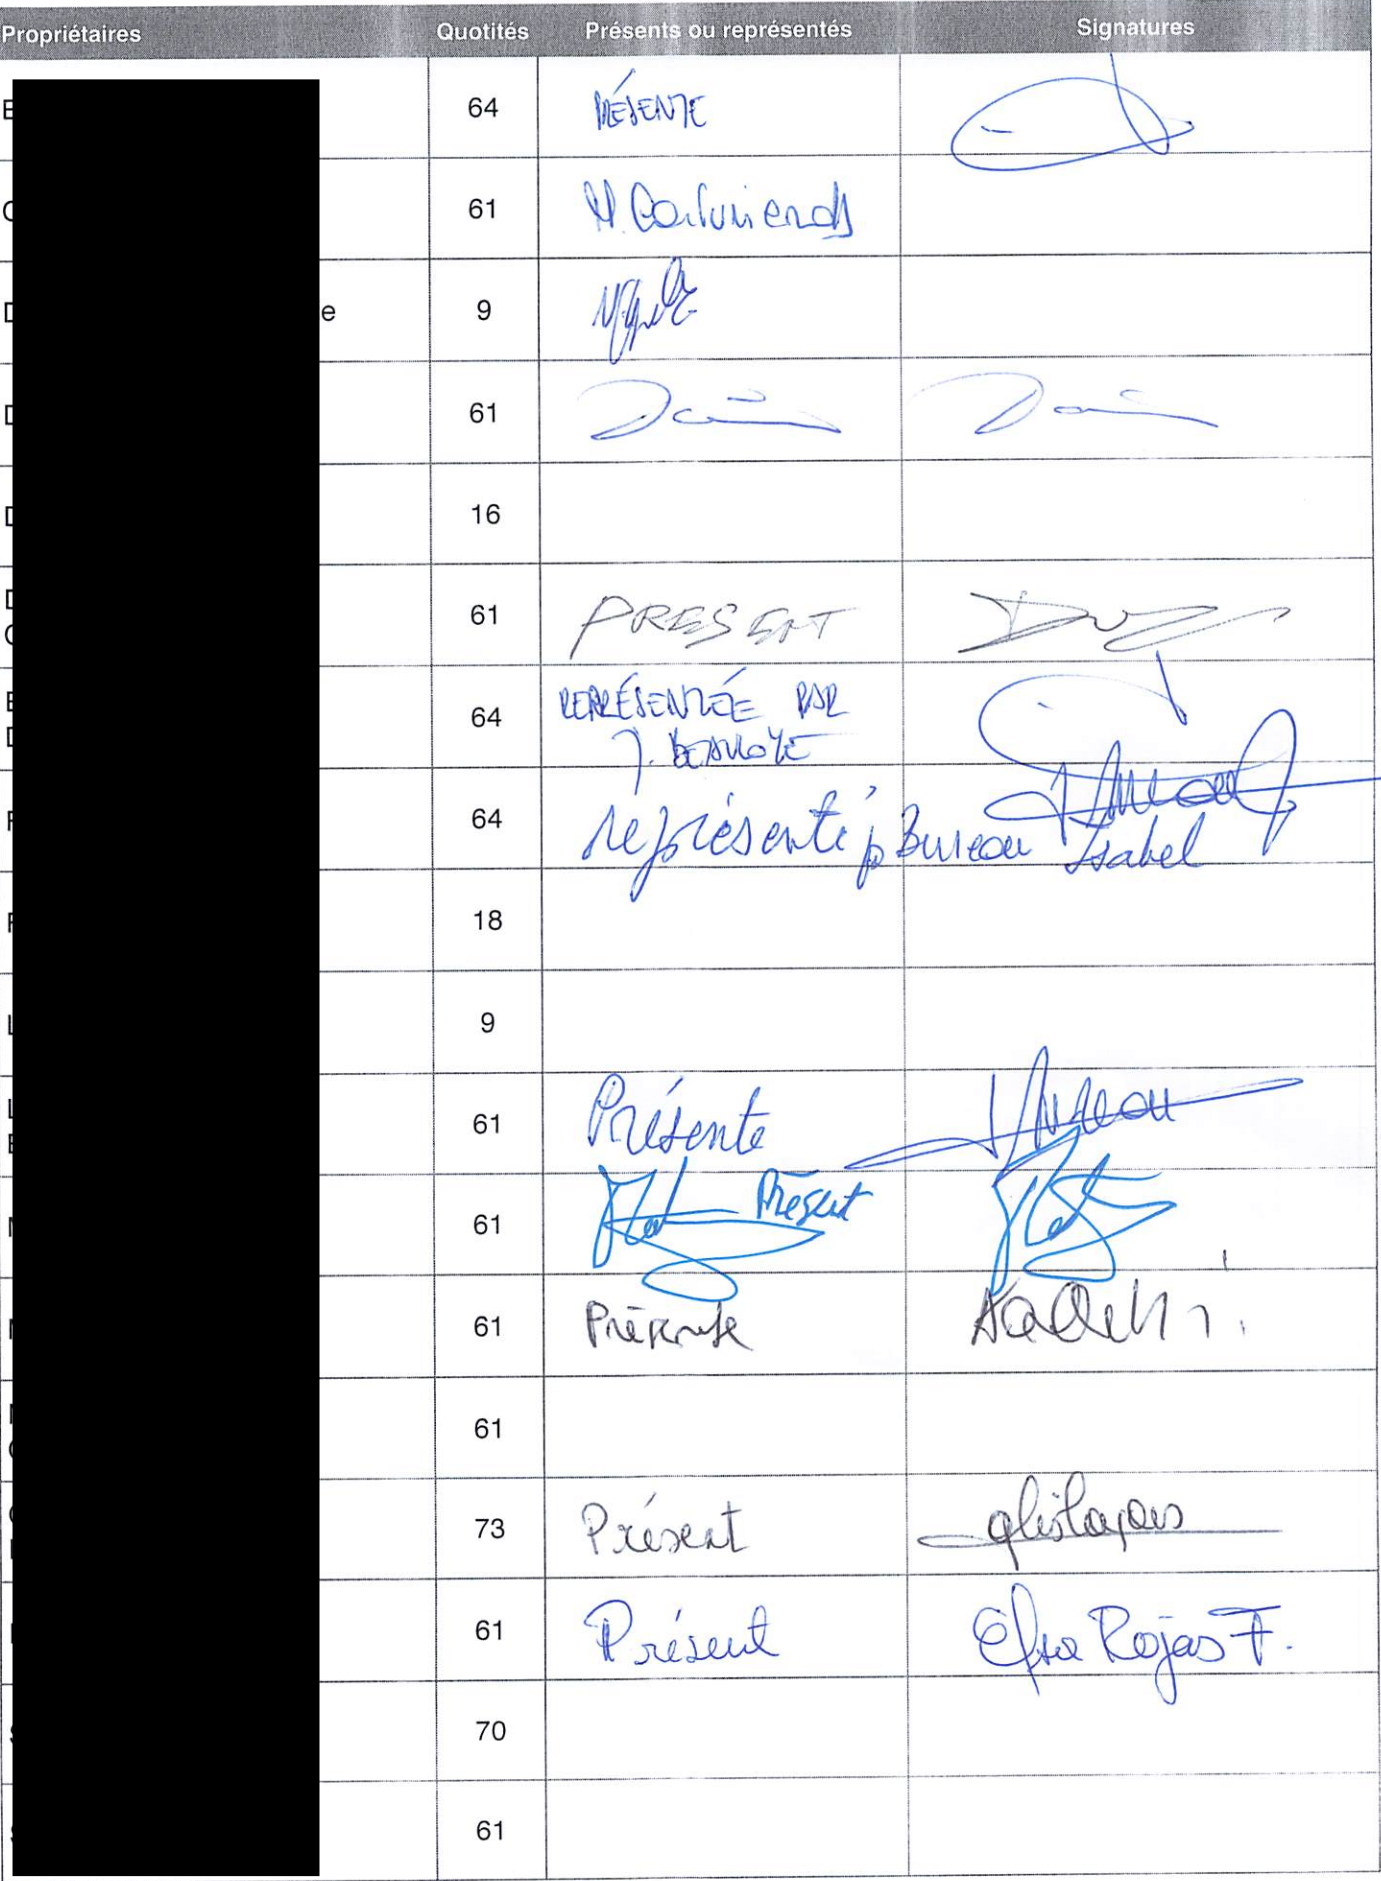 Propriétaires Quotités Présents ou représentés Signatures
64 PRÉSENTE
61
e 9
61
16
61 PRESENT
64 REPRÉSENTÉE PAR
J.
64 représenté p Bureau Isabel
18
9
61 Présente
61 Présent
61 Présente
61
73 Présent
61 Présent Elsa Rojas F.
70
61